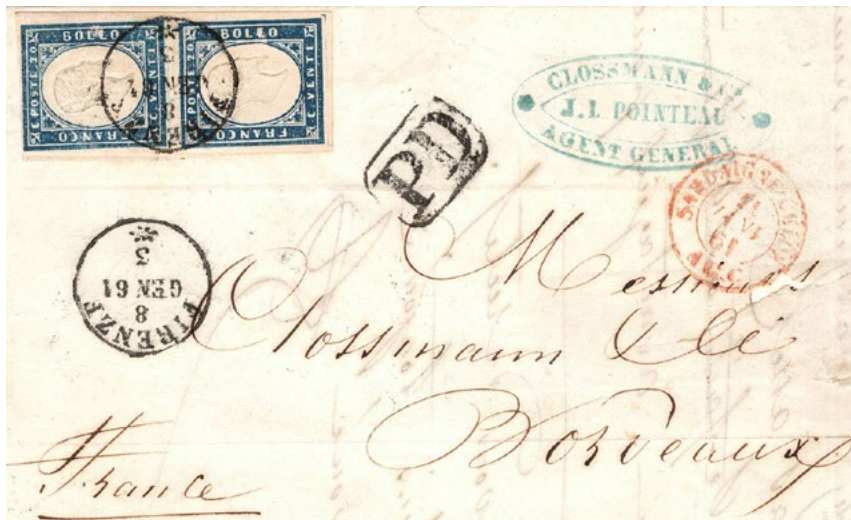 BOLLO
C. POSTE 20
C. VENTI
FRANCO
BOLLO
C. POSTE 20
C. VENTI
FRANCO
FIRENZE
8
GEN 61
3
PD
CLOSSMANN & Cie
J. I. POINTEAU
AGENT GENERAL
SARDAIGNE
11
61
FIRENZE
8
GEN 61
3
Messieurs
Clossmann & Cie
Bordeaux
France